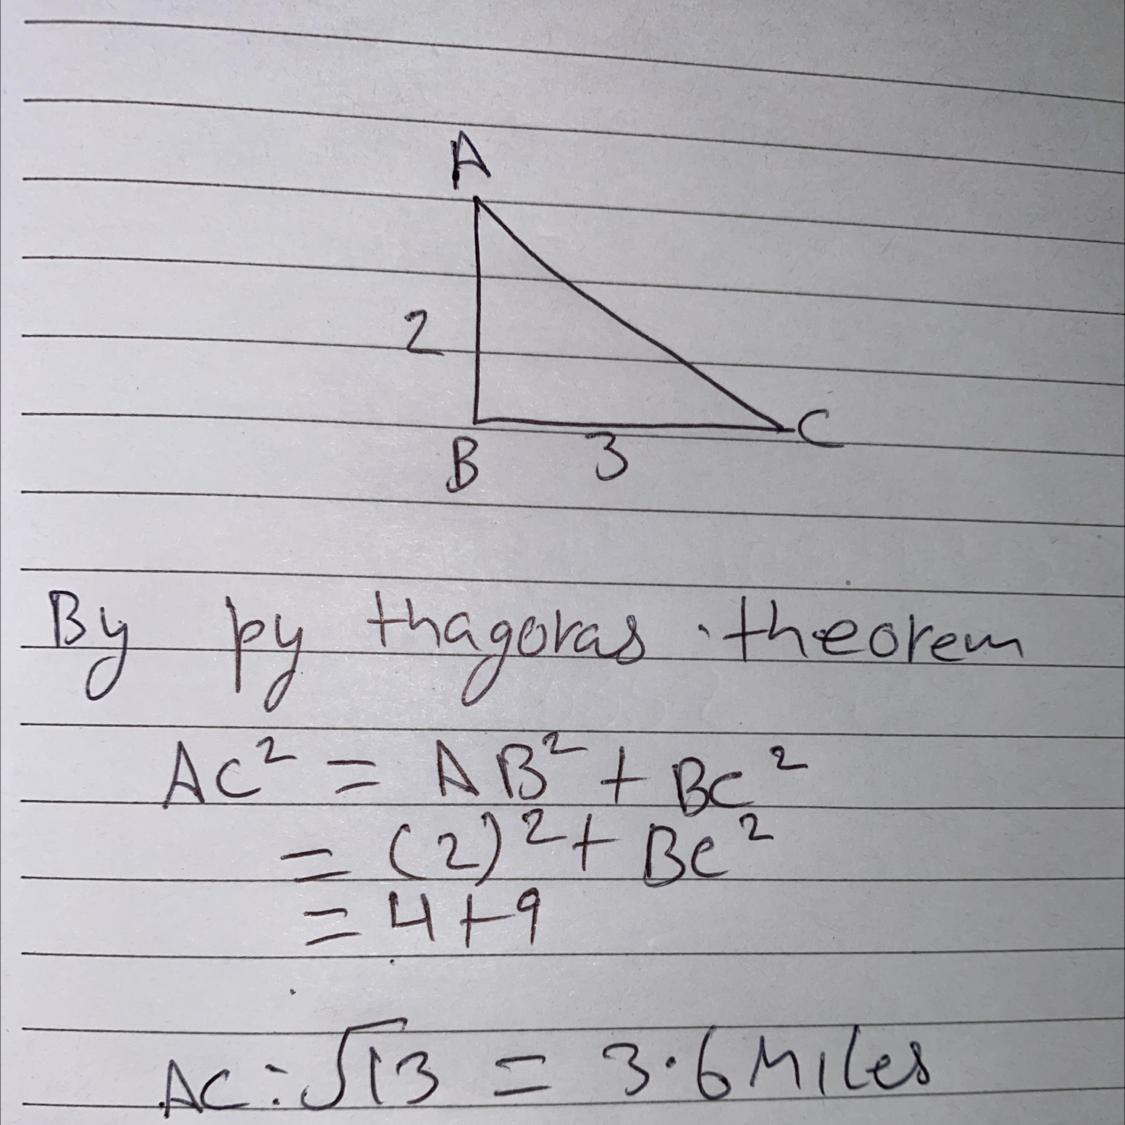 A
2
B 3 C
By pythagoras theorem
AC² = AB² + BC²
= (2)² + BC²
= 4+9
AC: √13 = 3.6 Miles